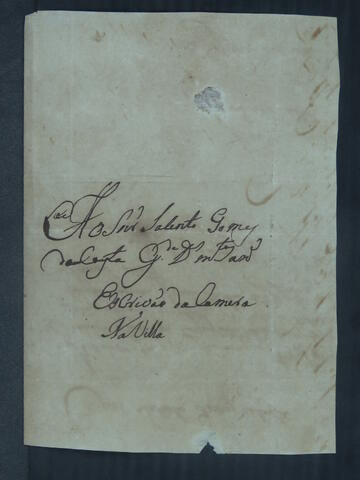 Ao Snr̃ Salento Gomes
da Costa G.de D.s m.tes an.s
Escrivão da Camera
Na Villa